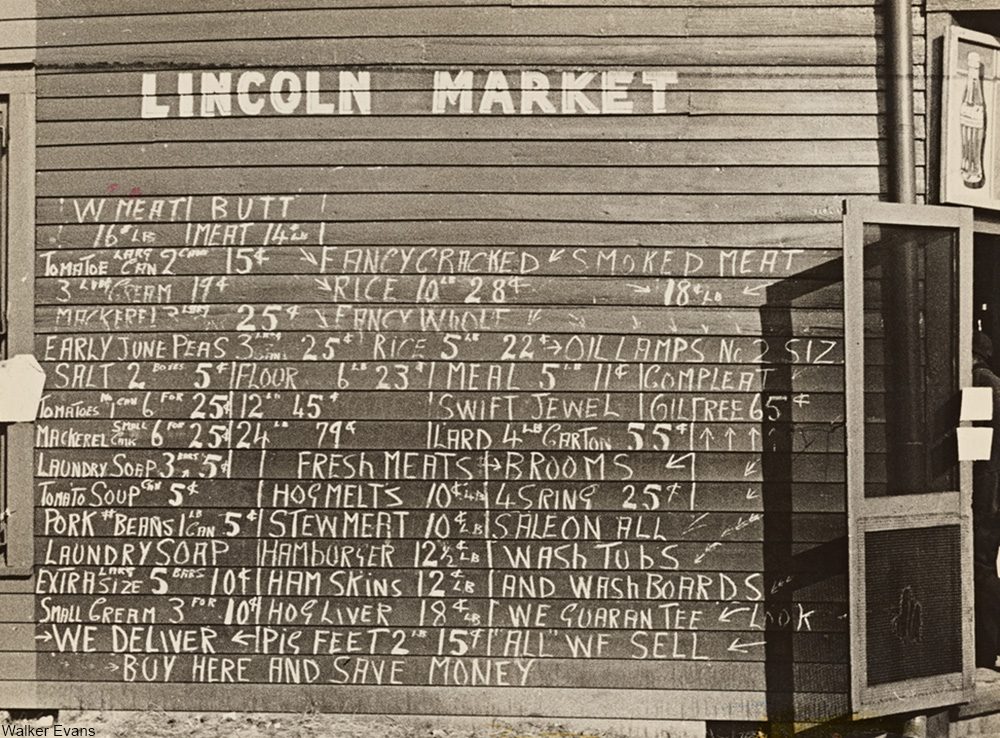 LINCOLN MARKET
W MEAT BUTT
16¢ LB MEAT 14¢ LB
TOMATOE LARG CAN 2 CAN 15¢ FANCY CRACKED SMOKED MEAT
3 CREAM 19¢ RICE 10 LB 28¢ 18¢ LB
MACKEREL 2 LARG 25¢ FANCY WHOLE
EARLY JUNE PEAS 3 CAN 25¢ RICE 5 LB 22¢ OIL LAMPS No 2 SIZ
SALT 2 BOXES 5¢ FLOUR 6 LB 23¢ MEAL 5 LB 11¢ COMPLEAT
TOMATOES No 1 CAN 6 FOR 25¢ 12 LB 45¢ SWIFT JEWEL OIL FREE 65¢
MACKEREL SMALL CANS 6 FOR 25¢ 24 LB 79¢ LARD 4 LB CARTON 55¢
LAUNDRY SOAP 3 BARS 5¢ FRESH MEATS BROOMS
TOMATO SOUP CAN 5¢ HOG MELTS 10¢ LB 4 SRING 25¢
PORK # BEANS 1 LB CAN 5¢ STEW MEAT 10¢ LB SALE ON ALL
LAUNDRY SOAP HAMBURGER 12½¢ LB WASH TUBS
EXTRA LARG SIZE 5 BARS 10¢ HAM SKINS 12¢ LB AND WASH BOARDS
SMALL CREAM 3 FOR 10¢ HOG LIVER 18¢ LB WE GUARANTEE LOOK
WE DELIVER PIG FEET 2 LB 15¢ "ALL" WE SELL
BUY HERE AND SAVE MONEY
Walker Evans